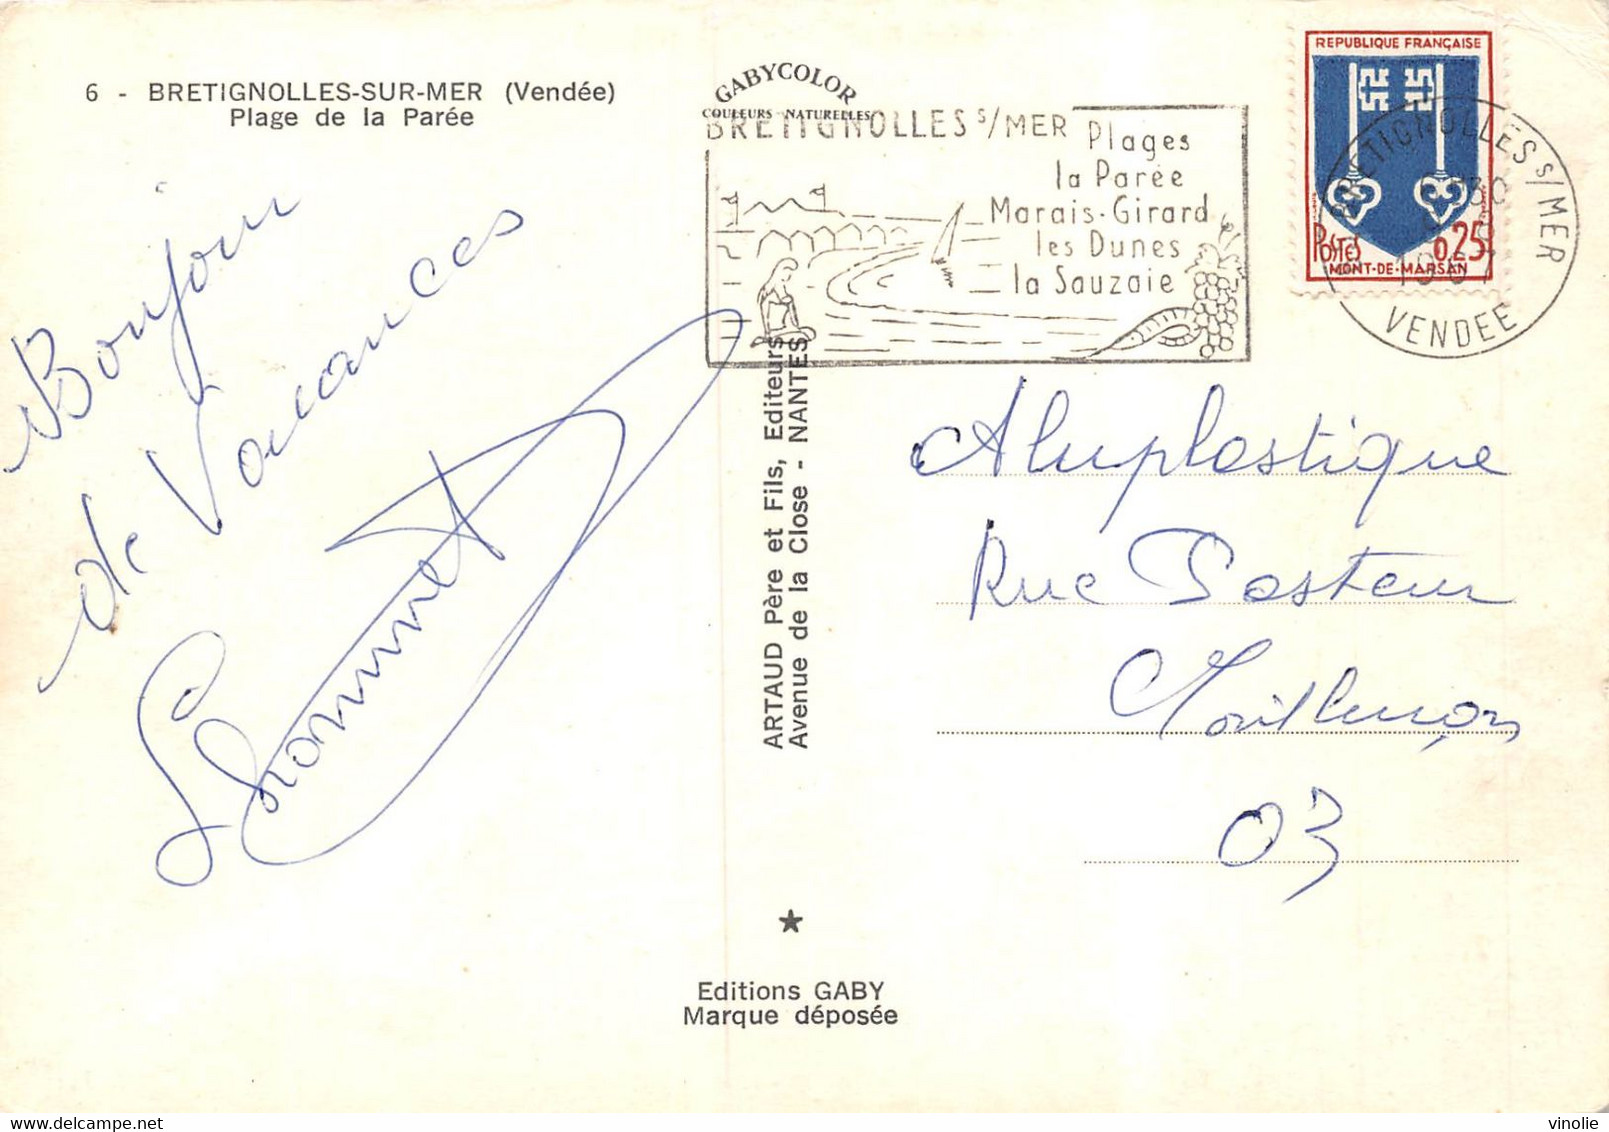 6 - BRETIGNOLLES-SUR-MER (Vendée)
Plage de la Parée
Bonjour
de Vacances
GABYCOLOR
COULEURS NATURELLES
BRETIGNOLLES S/MER
Plages
la Parée
Marais-Girard
les Dunes
la Sauzaie
REPUBLIQUE FRANÇAISE
POSTES 0,25
MONT-DE-MARSAN
BRETIGNOLLES S/MER
1967
VENDEE
ARTAUD Père et Fils, Editeurs
Avenue de la Close - NANTES
Aluplastique
Rue Pasteur
Montluçon
03
Editions GABY
Marque déposée
vinolie